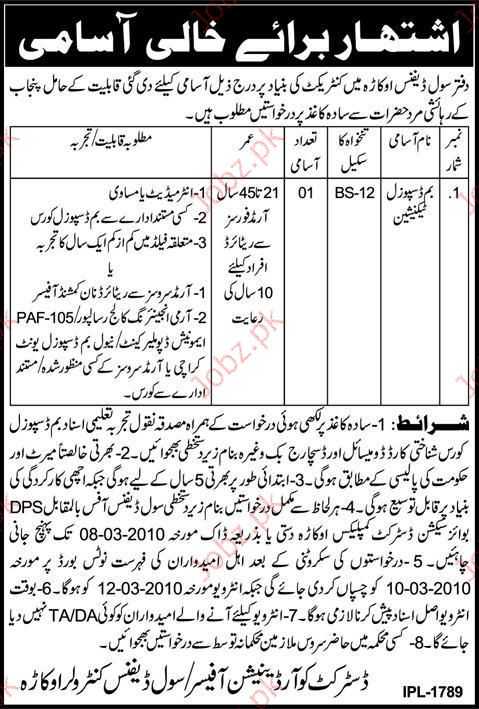 اشتہار برائے خالی آسامی
دفتر سول ڈیفنس اوکاڑہ میں کنٹریکٹ کی بنیاد پر درج ذیل آسامی کیلئے دی گئی قابلیت کے حامل پنجاب
کے رہائشی مرد حضرات سے سادہ کاغذ پر درخواستیں مطلوب ہیں۔
نمبر شمار
نام آسامی
تنخواہ کا سکیل
تعداد آسامی
عمر
مطلوبہ قابلیت/تجربہ
1.
بم ڈسپوزل
ٹیکنیشن
BS-12
01
21 تا 45 سال
آرمڈ فورسز
سے ریٹائرڈ
افراد کیلئے
10 سال کی
رعایت
1- انٹرمیڈیٹ یا مساوی
2- کسی مستند ادارے سے بم ڈسپوزل کورس
3- متعلقہ فیلڈ میں کم از کم ایک سال کا تجربہ
یا
1- آرمڈ سروسز سے ریٹائرڈ نان کمشنڈ آفیسر
2- آرمی انجینئرنگ کالج رسالپور/PAF-105
ایمونیشن ڈپو ملیر کینٹ/نیول بم ڈسپوزل یونٹ
کراچی یا آرمڈ سروسز کے کسی منظور شدہ/مستند
ادارے سے کورس۔
شرائط: 1- سادہ کاغذ پر لکھی ہوئی درخواست کے ہمراہ مصدقہ نقول تجربہ تعلیمی اسناد بم ڈسپوزل
کورس شناختی کارڈ ڈومیسائل اور ڈسچارج بک وغیرہ بنام زیر دستخطی بھجوائیں۔ 2- بھرتی خالصتاً میرٹ اور
حکومت کی پالیسی کے مطابق ہوگی۔ 3- ابتدائی طور پر بھرتی 5 سال کے لیے ہوگی جبکہ اچھی کارکردگی کی
بنیاد پر قابل توسیع ہوگی۔ 4- ہر لحاظ سے مکمل درخواستیں بنام زیر دستخطی سول ڈیفنس آفس بالمقابل DPS
بوائز سیکشن ڈسٹرکٹ کمپلیکس اوکاڑہ دستی یا بذریعہ ڈاک مورخہ 08-03-2010 تک پہنچ جانی
چاہئیں۔ 5- درخواستوں کی سکروٹنی کے بعد اہل امیدواران کی فہرست نوٹس بورڈ پر مورخہ
10-03-2010 کو چسپاں کر دی جائے گی جبکہ انٹرویو مورخہ 12-03-2010 کو ہوگا۔ 6- بوقت
انٹرویو اصل اسناد پیش کرنا لازمی ہوگا۔ 7- انٹرویو کیلئے آنے والے امیدواران کو کوئی TA/DA نہیں دیا
جائے گا۔ 8- کسی محکمہ میں حاضر سروس ملازمین محکمانہ توسط سے درخواستیں بھجوائیں۔
ڈسٹرکٹ کوآرڈینیشن آفیسر/سول ڈیفنس کنٹرولر اوکاڑہ
IPL-1789
Jobz.pk